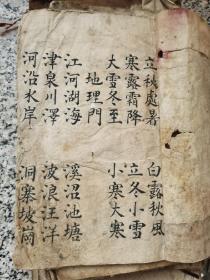 立秋處暑 白露秋風
寒露霜降 立冬小雪
大雪冬至 小寒大寒
地理門
江河湖海 溪沼池塘
津泉川澤 波浪汪洋
河沿水岸 洞寨坡崗